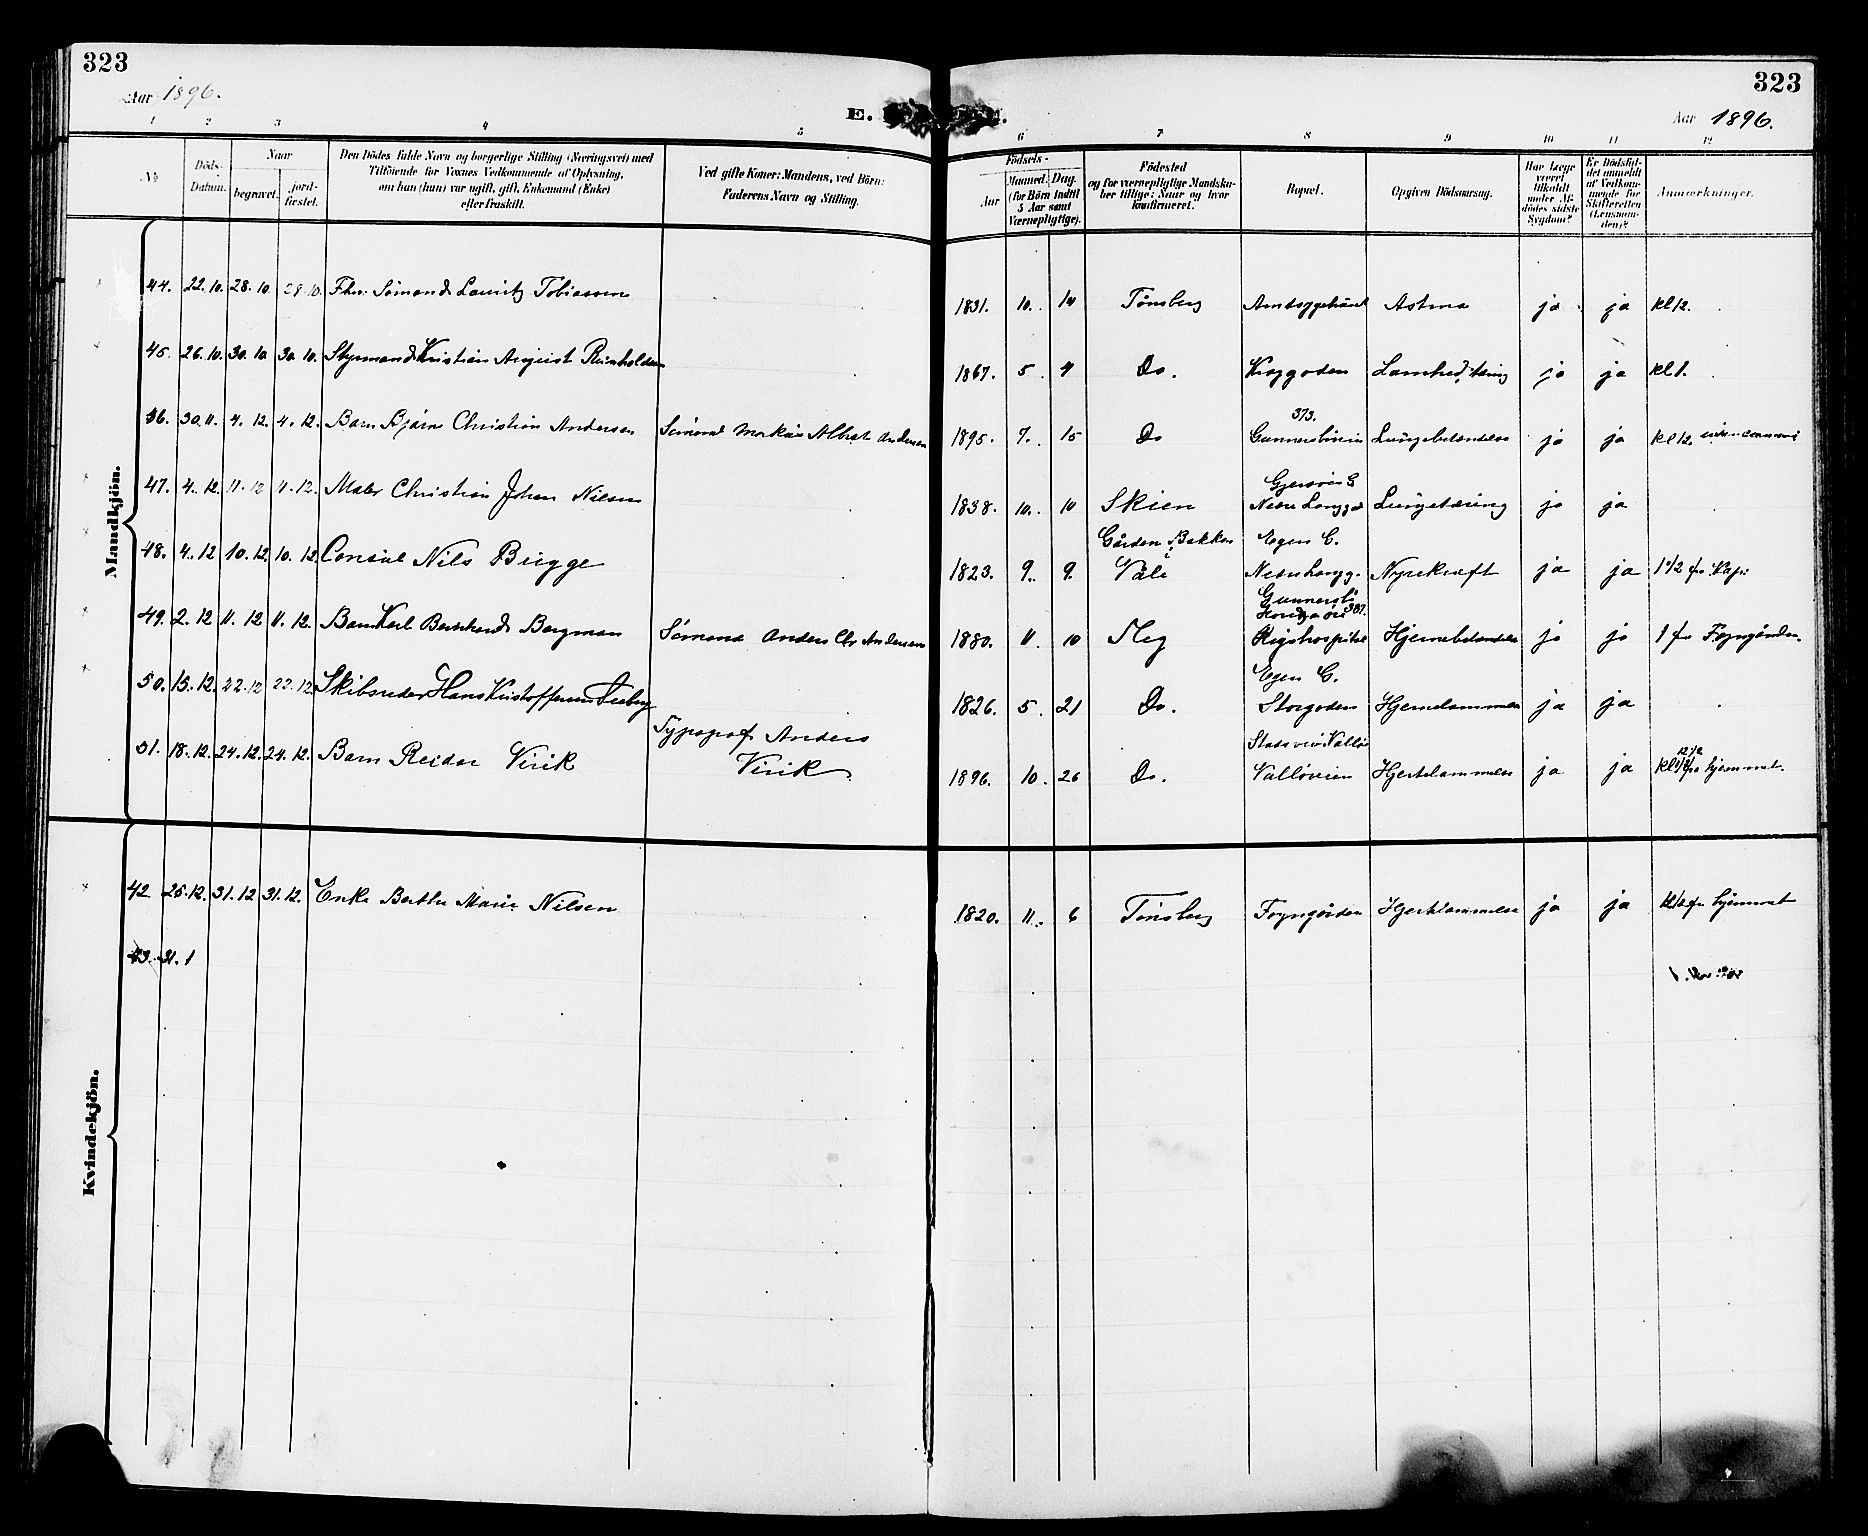 323
Aar 1896.
E.
323
Aar 1896.
1 2 3 4 5 6 7 8 9 10 11 12
No
Döds-Datum.
Naar
begravet.
jordfæstet.
Den Dödes fulde Navn og borgerlige Stilling (Næringsvei) med
Tilföiende for Voxnes Vedkommende af Oplysning,
om han (hun) var ugift, gift, Enkemand (Enke)
eller fraskilt.
Ved gifte Koner: Mandens, ved Börn:
Faderens Navn og Stilling.
Födsels-
Aar
Maaned. Dag.
(for Börn indtil
5 Aar samt
Værnepligtige).
Födested
og for værnepligtige Mandska-
ber tillige: Naar og hvor
konfirmeret.
Bopæl.
Opgiven Dödsaarsag.
Har Læge
været
tilkaldt
under Af-
dödes sidste
Sygdom?
Er Dödsfal-
det anmeldt
af Vedkom-
mende for
Skifteretten
(Lensman-
den)?
Anmærkninger.
Mandkjön.
44. 22.10. 28.10 28.10. Fhv. Sömand Lauritz Tobiassen 1831. 10. 14 Tönsberg Astma ja ja kl 12.
45. 26.10. 30.10 30.10. Styrmand Kristian August Reinholdsen 1867. 5. 4 Do. ja ja kl 1.
46. 30.11. 4.12. 4.12. Barn Bjarne Christian Andersen Sömand Markus Albert Andersen 1895. 7. 15 Do 373. Lungebetændelse ja ja kl 12.
47. 4.12. 11.12 11.12. Maler Christian Johan Nilsen 1838. 10. 10 Skien Nedre Langgd Lungetæring ja ja
48. 4.12 10.12 10.12. Consul Nils Brygge 1823. 9. 9. Gården Bakken i Våle Egen G. Nedre Langg. Nyrekræft ja ja 1 1/2 fr. Kap.
49. 2.12 11.12 11.12. Barn Karl Bernhard Bergman Sömand Anders Chr Andersen 1880. 11. 10 387. Rigshospital Hjernebetændelse ja ja 1 fra Fayegården.
50. 15.12. 22.12 22.12. Skibsreder Hans Kristoffersen 1826. 5. 21 Do. Egen G. Storgaden Hjernelammelse ja ja
51. 18.12. 24.12. 24.12. Barn Reidar Virik Typograf Anders
Virik 1896. 10. 26 Do. Vallöveien Hjertelammelse ja ja fra hjemmet.
Kvindekjön.
42 25.12. 31.12 31.12. Enke Berthe Marie Nilsen 1820. 11. 6 Tönsberg Hjertelammelse ja ja fr. hjemmet
43. 31.1